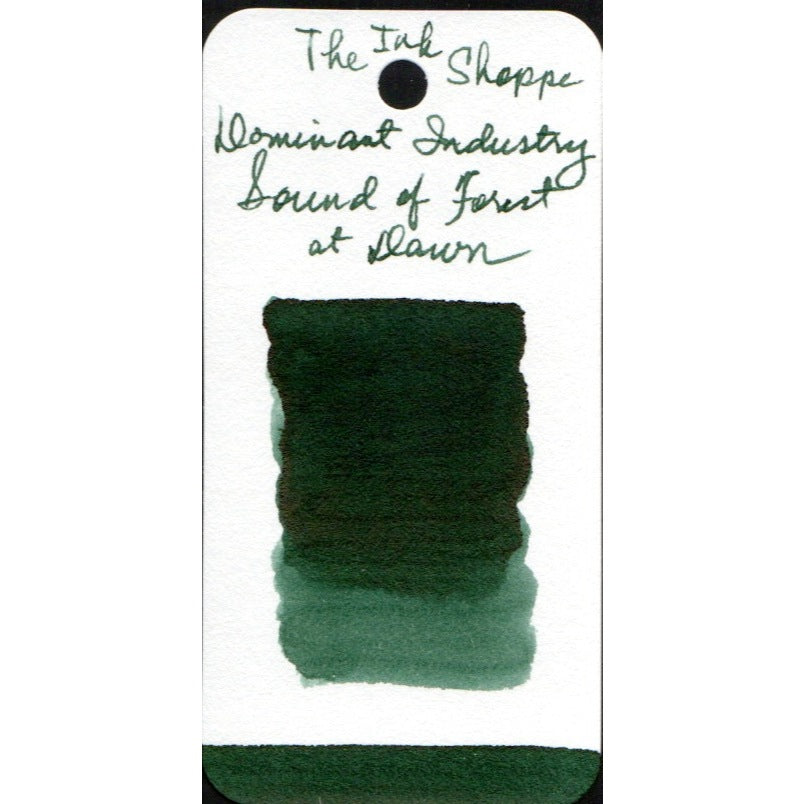 The Ink Shoppe
Dominant Industry
Sound of Forest
at Dawn